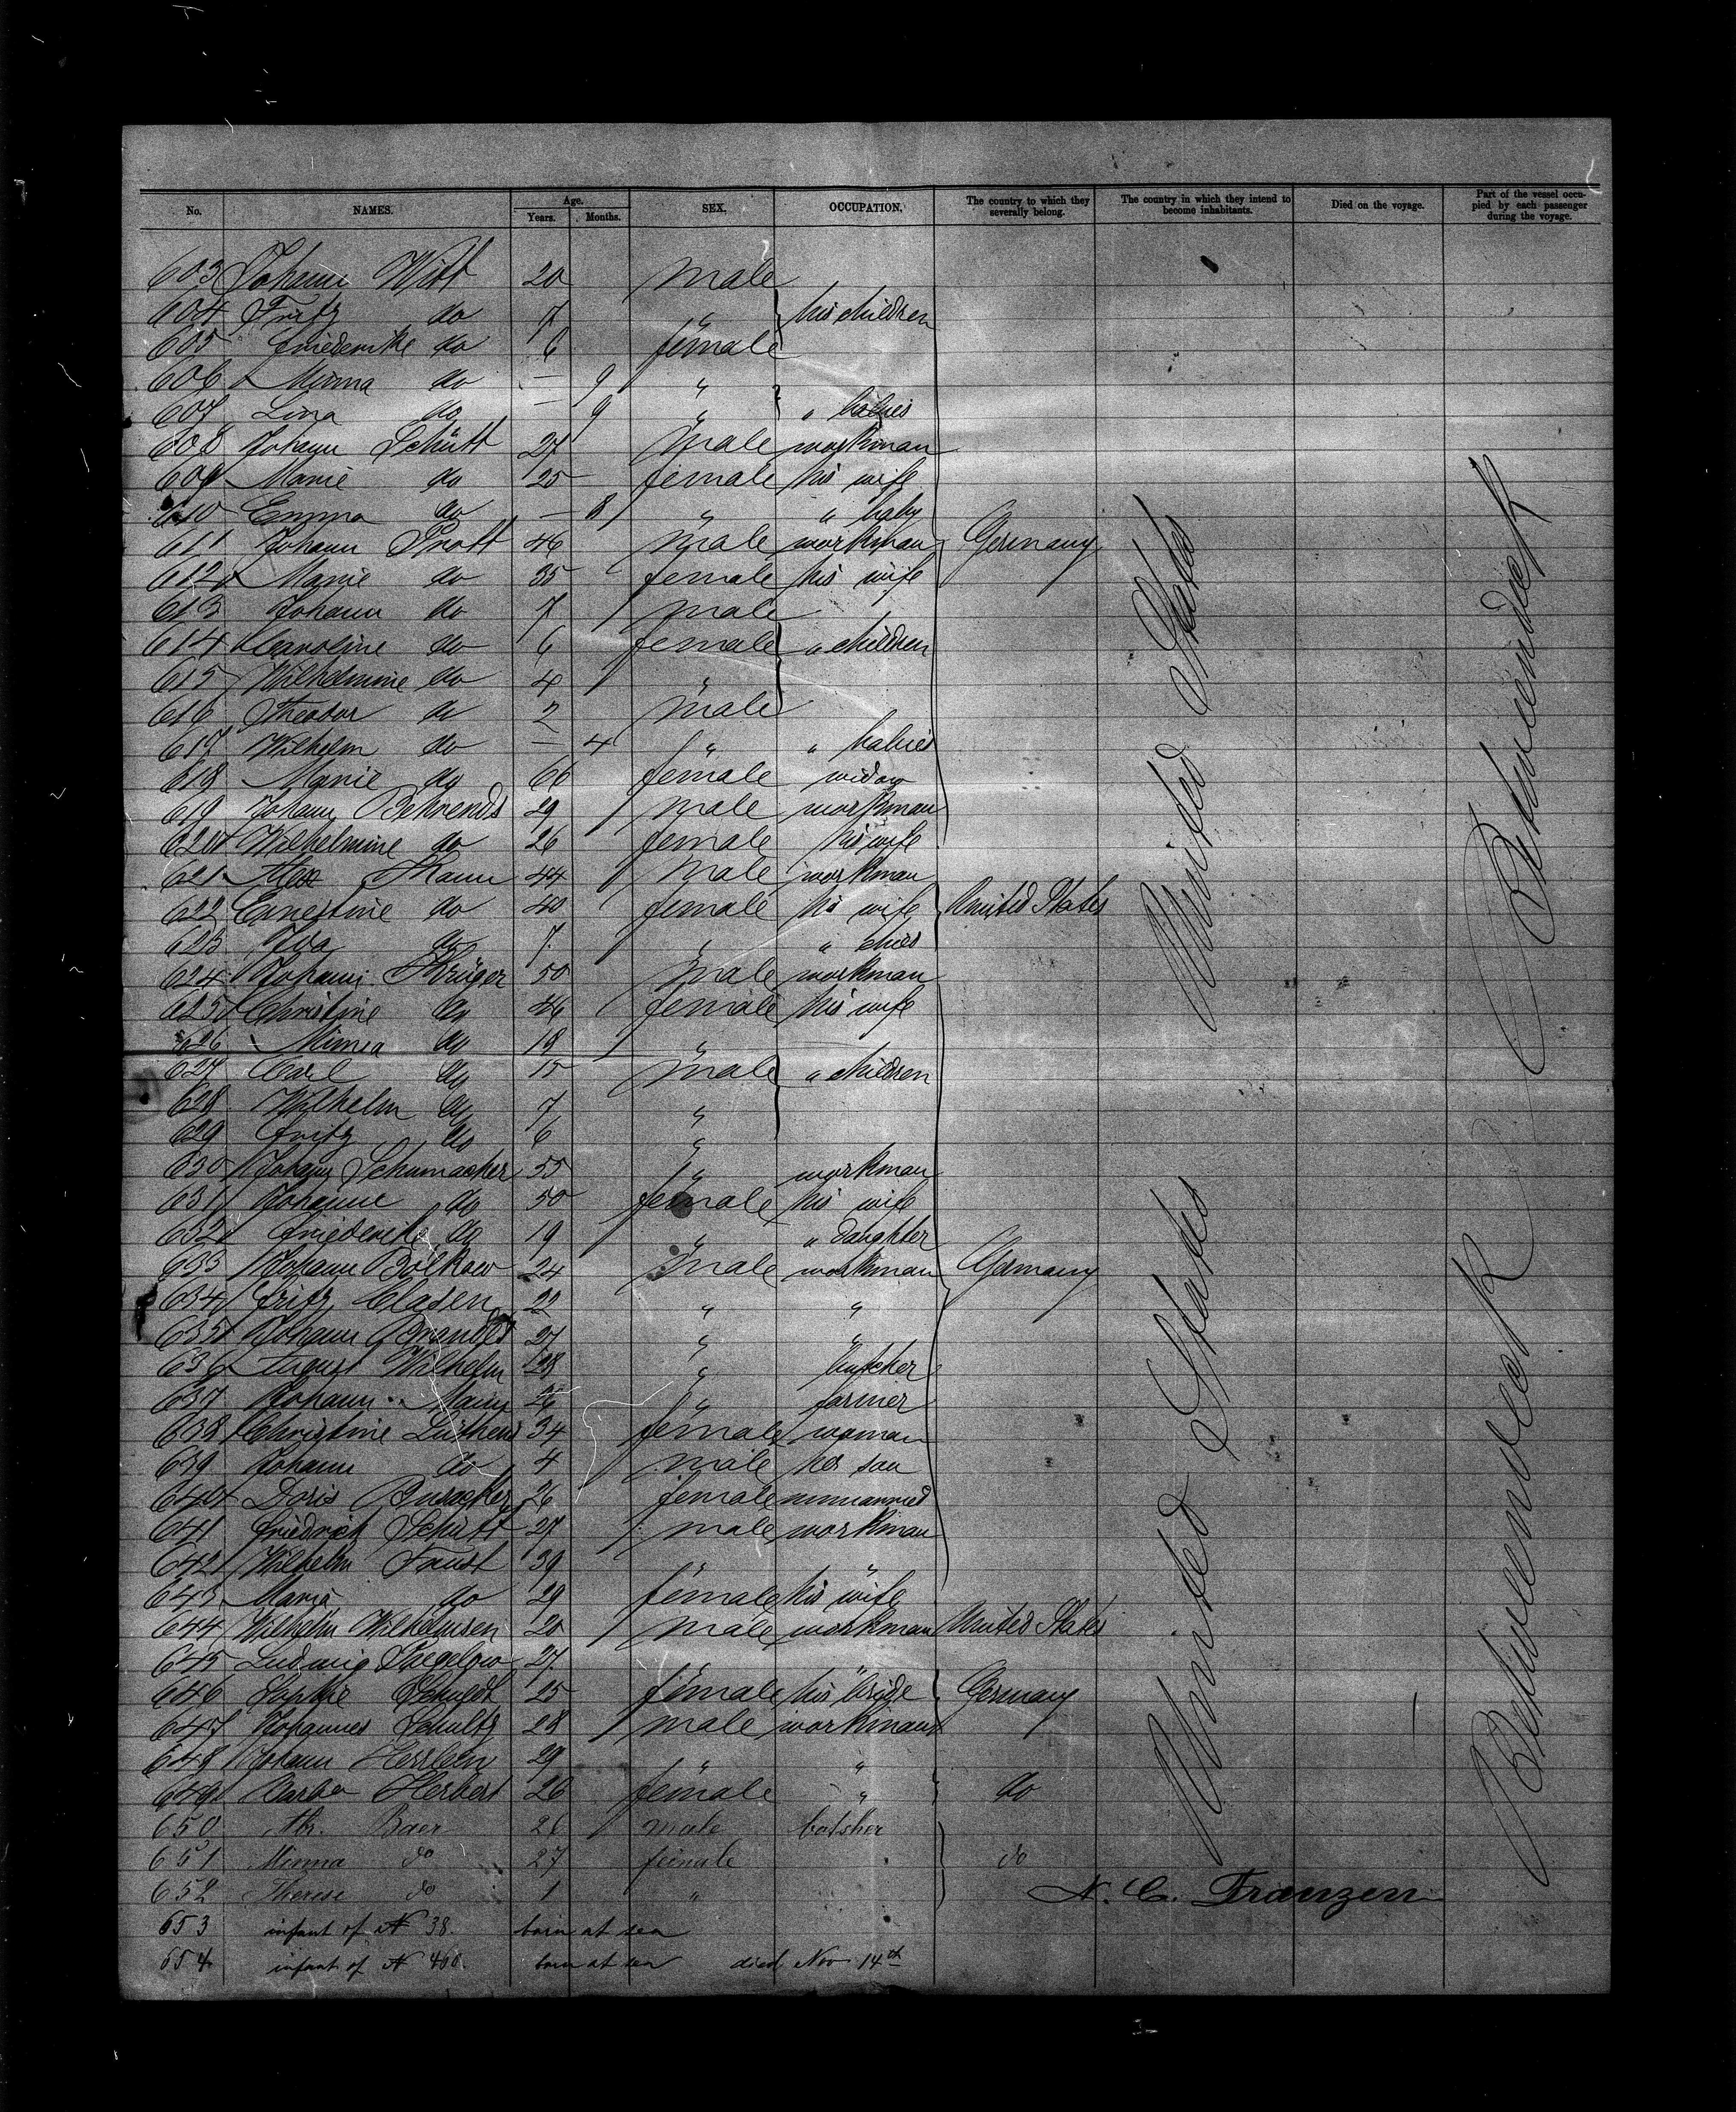 No. NAMES. Age. Years. Months. SEX. OCCUPATION. The country to which they severally belong. The country in which they intend to become inhabitants. Died on the voyage. Part of the vessel occupied by each passenger during the voyage.
603 Johann Witt 20 male
604 Fritz do 7 " his children
605 Friederike do 6 female
606 Minna do — 9 "
607 Lina do — 9 " " babies
608 Johann Schütt 27 male workman
609 Marie do 25 female his wife
610 Emma do — 8 " " baby
611 Johann Prott 46 male workman Germany
612 Marie do 35 female his wife
613 Johann do 7 male
614 Caroline do 6 female " children
615 Wilhelmine do 4 "
616 Theodor do 2 male
617 Wilhelm do — 4 " " babies
618 Marie do 66 female widow
619 Johann Behrends 29 male workman
620 Wilhelmine do 26 female his wife
621 Thaun 44 male workman
622 Ernestine do 40 female his wife United States
623 Ida do 7 " " child
624 Johann Krüger 50 male workman
625 Christine do 46 female his wife
626 Minna do 18 "
627 Carl do 15 male " children
628 Wilhelm do 7 "
629 Fritz do 6 "
630 Johann Schumacher 55 " workman
631 Johanne do 50 female his wife
632 Friederike do 19 " " daughter
633 Johann Bolkow 24 male workman Germany
634 Fritz Clasen 22 " "
635 Johann 27 " "
636 August Wilhelm 28 " butcher
637 Johann 26 " farmer
638 Christine Lüthens 34 female woman
639 Johann do 4 male her son
640 Doris Busacker 26 female unmarried
641 Friedrich Schütt 27 male workman
642 Wilhelm Faust 39 " "
643 Maria do 29 female his wife
644 Wilhelm Wilhelmsen 20 male workman United States
645 Ludwig 27 " "
646 Sophie Schuldt 25 female his bride Germany
647 Johannes Schultz 28 male workman
648 Johann Herrlein 29 " "
649 Barba Herbert 26 female " do
650 Baer 26 male butsher
651 Minna do 27 female do
652 Therese do 1 "
653 infant of N 38. born at sea
654 infant of N 460. born at sea died Nov 14th
N. C. Franzen
United States
United States
Betweendeck
Betweendeck